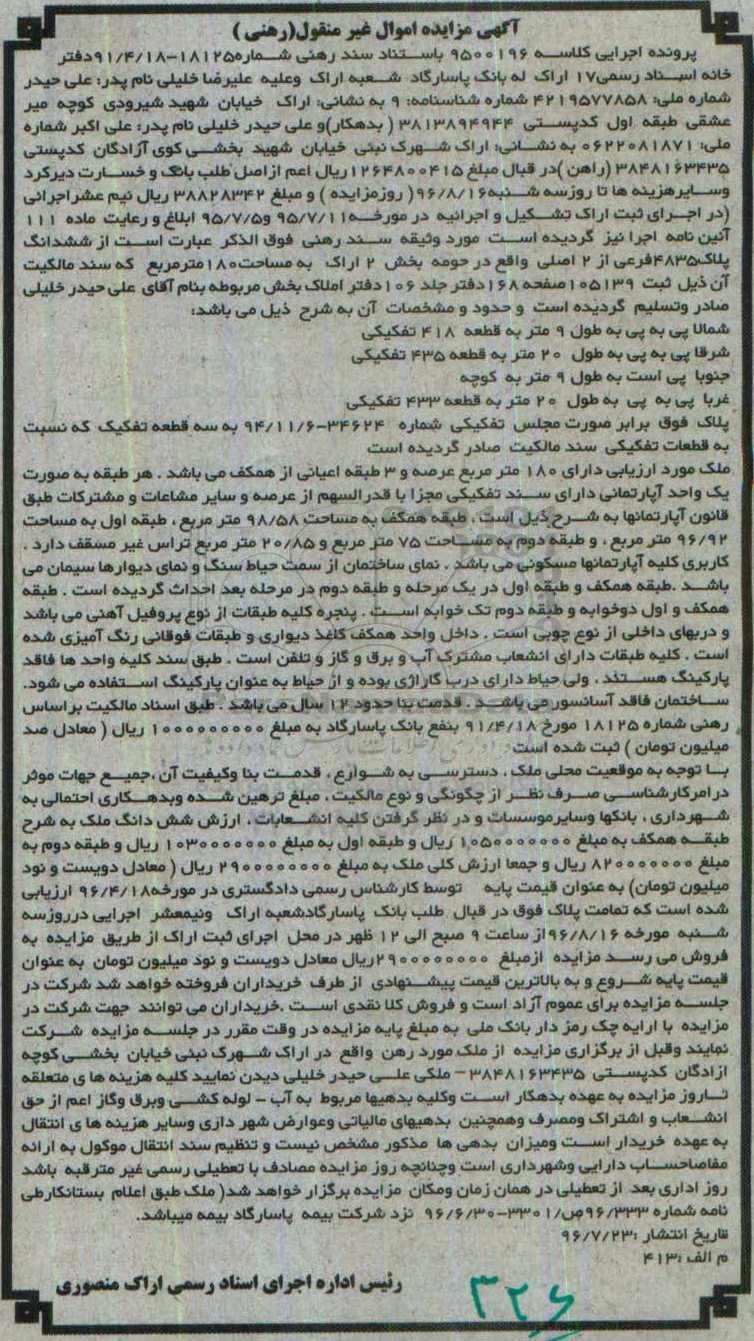 آگهی مزایده اموال غیر منقول(رهنی )
پرونده اجرایی کلاسه ۹۵۰۰۱۹۶ باستناد سند رهنی شماره۱۸۱۲۵-۹۱/۴/۱۸دفتر
خانه اسناد رسمی۱۷ اراک له بانک پاسارگاد شعبه اراک وعلیه علیرضا خلیلی نام پدر: علی حیدر
شماره ملی: ۴۲۱۹۵۷۷۸۵۸ شماره شناسنامه: ۹ به نشانی: اراک خیابان شهید شیرودی کوچه میر
عشقی طبقه اول کدپستی ۳۸۱۳۸۹۴۹۴۴ ( بدهکار)و علی حیدر خلیلی نام پدر: علی اکبر شماره
ملی: ۰۶۲۲۰۸۱۸۷۱ به نشانی: اراک شهرک نبئی خیابان شهید بخشی کوی آزادگان کدپستی
۳۸۴۸۱۶۳۴۳۵ (راهن )در قبال مبلغ ۱۲۶۴۸۰۰۴۱۵ریال اعم ازاصل طلب بانک و خسارت دیرکرد
وسایرهزینه ها تا روزسه شنبه۹۶/۸/۱۶( روزمزایده ) و مبلغ ۳۸۸۲۸۳۴۲ ریال نیم عشراجرائی
(در اجرای ثبت اراک تشکیل و اجرائیه در مورخه۹۵/۷/۱۱ و۹۵/۷/۵ ابلاغ و رعایت ماده ۱۱۱
آئین نامه اجرا نیز گردیده است مورد وثیقه سند رهنی فوق الذکر عبارت است از ششدانگ
پلاک۴۸۳۵فرعی از ۲ اصلی واقع در حومه بخش ۲ اراک به مساحت۱۸۰مترمربع که سند مالکیت
آن ذیل ثبت ۱۰۵۱۳۹صفحه ۱۶۸دفتر جلد ۱۰۶دفتر املاک بخش مربوطه بنام آقای علی حیدر خلیلی
صادر وتسلیم گردیده است و حدود و مشخصات آن به شرح ذیل می باشد:
شمالا پی به پی به طول ۹ متر به قطعه ۴۱۸ تفکیکی
شرقا پی به پی به طول ۲۰ متر به قطعه ۴۳۵ تفکیکی
جنوبا پی است به طول ۹ متر به کوچه
غربا پی به پی به طول ۲۰ متر به قطعه ۴۳۳ تفکیکی
پلاک فوق برابر صورت مجلس تفکیکی شماره ۳۴۶۲۴-۹۴/۱۱/۶ به سه قطعه تفکیک که نسبت
به قطعات تفکیکی سند مالکیت صادر گردیده است
ملک مورد ارزیابی دارای ۱۸۰ متر مربع عرصه و ۳ طبقه اعیانی از همکف می باشد . هر طبقه به صورت
یک واحد آپارتمانی دارای سند تفکیکی مجزا با قدرالسهم از عرصه و سایر مشاعات و مشترکات طبق
قانون آپارتمانها به شرح ذیل است . طبقه همکف به مساحت ۹۸/۵۸ متر مربع ، طبقه اول به مساحت
۹۶/۹۲ متر مربع ، و طبقه دوم به مساحت ۷۵ متر مربع و ۲۰/۸۵ متر مربع تراس غیر مسقف دارد .
کاربری کلیه آپارتمانها مسکونی می باشد . نمای ساختمان از سمت حیاط سنگ و نمای دیوارها سیمان می
باشد .طبقه همکف و طبقه اول در یک مرحله و طبقه دوم در مرحله بعد احداث گردیده است . طبقه
همکف و اول دوخوابه و طبقه دوم تک خوابه است . پنجره کلیه طبقات از نوع پروفیل آهنی می باشد
و دربهای داخلی از نوع چوبی است . داخل واحد همکف کاغذ دیواری و طبقات فوقانی رنگ آمیزی شده
است . کلیه طبقات دارای انشعاب مشترک آب و برق و گاز و تلفن است . طبق سند کلیه واحد ها فاقد
پارکینگ هستند . ولی حیاط دارای درب گاراژی بوده و از حیاط به عنوان پارکینگ استفاده می شود.
ساختمان فاقد آسانسور می باشد . قدمت بنا حدود ۱۲ سال می باشد . طبق اسناد مالکیت براساس
رهنی شماره ۱۸۱۲۵ مورخ ۹۱/۴/۱۸ بنفع بانک پاسارگاد به مبلغ ۱۰۰۰۰۰۰۰۰۰ ریال ( معادل صد
میلیون تومان ) ثبت شده است
با توجه به موقعیت محلی ملک ، دسترسی به شوارع ، قدمت بنا وکیفیت آن ،جمیع جهات موثر
درامرکارشناسی صرف نظر از چگونگی و نوع مالکیت ، مبلغ ترهین شده وبدهکاری احتمالی به
شهرداری ، بانکها وسایرموسسات و در نظر گرفتن کلیه انشعابات ، ارزش شش دانگ ملک به شرح
طبقه همکف به مبلغ ۱,۰۵۰۰۰۰۰۰۰۰ ریال و طبقه اول به مبلغ ۱۰۳۰۰۰۰۰۰۰ ریال و طبقه دوم به
مبلغ ۸۲۰۰۰۰۰۰۰ ریال و جمعا ارزش کلی ملک به مبلغ ۲۹۰۰۰۰۰۰۰۰ ریال ( معادل دویست و نود
میلیون تومان) به عنوان قیمت پایه توسط کارشناس رسمی دادگستری در مورخه۹۶/۴/۱۸ ارزیابی
شده است که تمامت پلاک فوق در قبال طلب بانک پاسارگادشعبه اراک ونیمعشر اجرایی درروزسه
شنبه مورخه ۹۶/۸/۱۶از ساعت ۹ صبح الی ۱۲ ظهر در محل اجرای ثبت اراک از طریق مزایده به
فروش می رسد مزایده ازمبلغ ۲۹۰۰۰۰۰۰۰۰ریال معادل دویست و نود میلیون تومان به عنوان
قیمت پایه شروع و به بالاترین قیمت پیشنهادی از طرف خریداران فروخته خواهد شد شرکت در
جلسه مزایده برای عموم آزاد است و فروش کلا نقدی است .خریداران می توانند جهت شرکت در
مزایده با ارایه چک رمز دار بانک ملی به مبلغ پایه مزایده در وقت مقرر در جلسه مزایده شرکت
نمایند وقبل از برگزاری مزایده از ملک مورد رهن واقع در اراک شهرک نبئی خیابان بخشی کوچه
ازادگان کدپستی ۳۸۴۸۱۶۳۴۳۵ – ملکی علی حیدر خلیلی دیدن نمایید کلیه هزینه ها ی متعلقه
تاروز مزایده به عهده بدهکار است وکلیه بدهیها مربوط به آب – لوله کشی وبرق وگاز اعم از حق
انشعاب و اشتراک ومصرف وهمچنین بدهیهای مالیاتی وعوارض شهر داری وسایر هزینه ها ی انتقال
به عهده خریدار است ومیزان بدهی ها مذکور مشخص نیست و تنظیم سند انتقال موکول به ارائه
مفاصاحساب دارایی وشهرداری است وچنانچه روز مزایده مصادف با تعطیلی رسمی غیر مترقبه باشد
روز اداری بعد از تعطیلی در همان زمان ومکان مزایده برگزار خواهد شد( ملک طبق اعلام بستانکارطی
نامه شماره ۹۶/۳۳۳ص/۳۳۰۱-۹۶/۶/۳۰ نزد شرکت بیمه پاسارگاد بیمه میباشد.
تاریخ انتشار :۹۶/۷/۲۳
م الف :۴۱۳
رئیس اداره اجرای اسناد رسمی اراک منصوری
۳۲۶